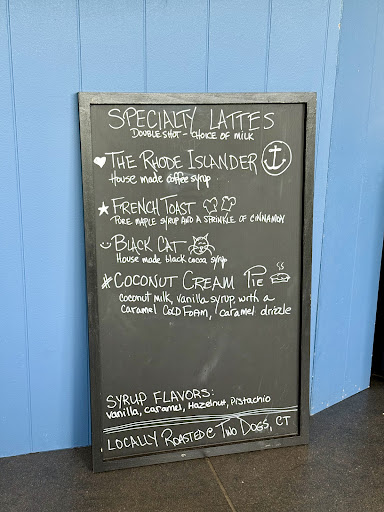 SPECIALTY LATTES
DOUBLE SHOT - CHOICE OF MILK
THE RHODE ISLANDER
House made coffee syrup
FRENCH TOAST
PURE MAPLE SYRUP AND A SPRINKLE OF CINNAMON
BLACK CAT
House made black cocoa syrup
COCONUT CREAM PIE
coconut milk, vanilla syrup, with a
caramel COLD FOAM, caramel drizzle
SYRUP FLAVORS:
Vanilla, caramel, Hazelnut, Pistachio
LOCALLY ROASTED @ TWO DOGS, CT